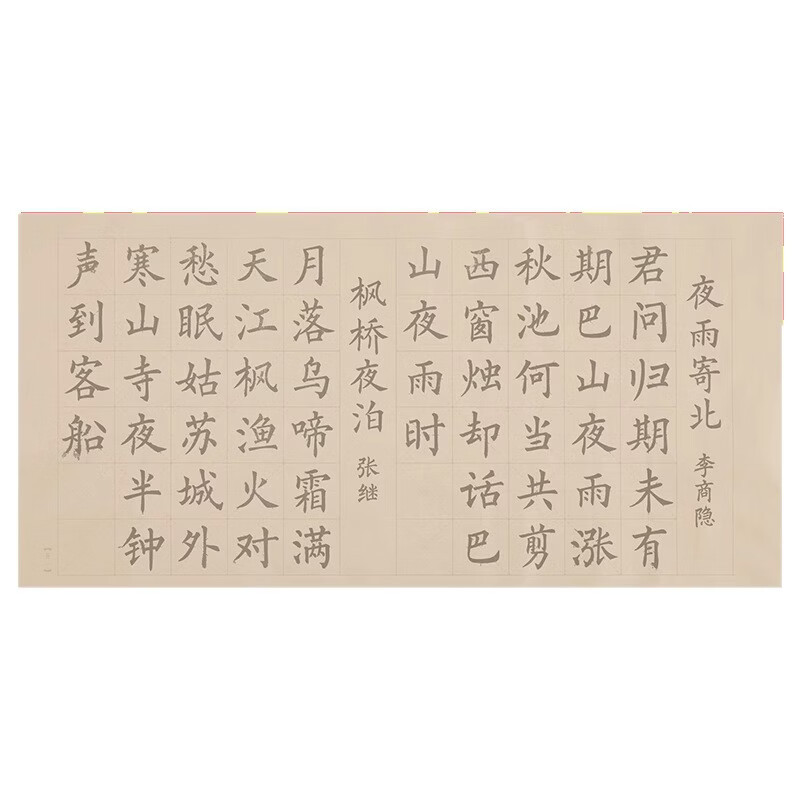 夜雨寄北 李商隐
君问归期未有
期巴山夜雨涨
秋池何当共剪
西窗烛却话巴
山夜雨时
枫桥夜泊 张继
月落乌啼霜满
天江枫渔火对
愁眠姑苏城外
寒山寺夜半钟
声到客船